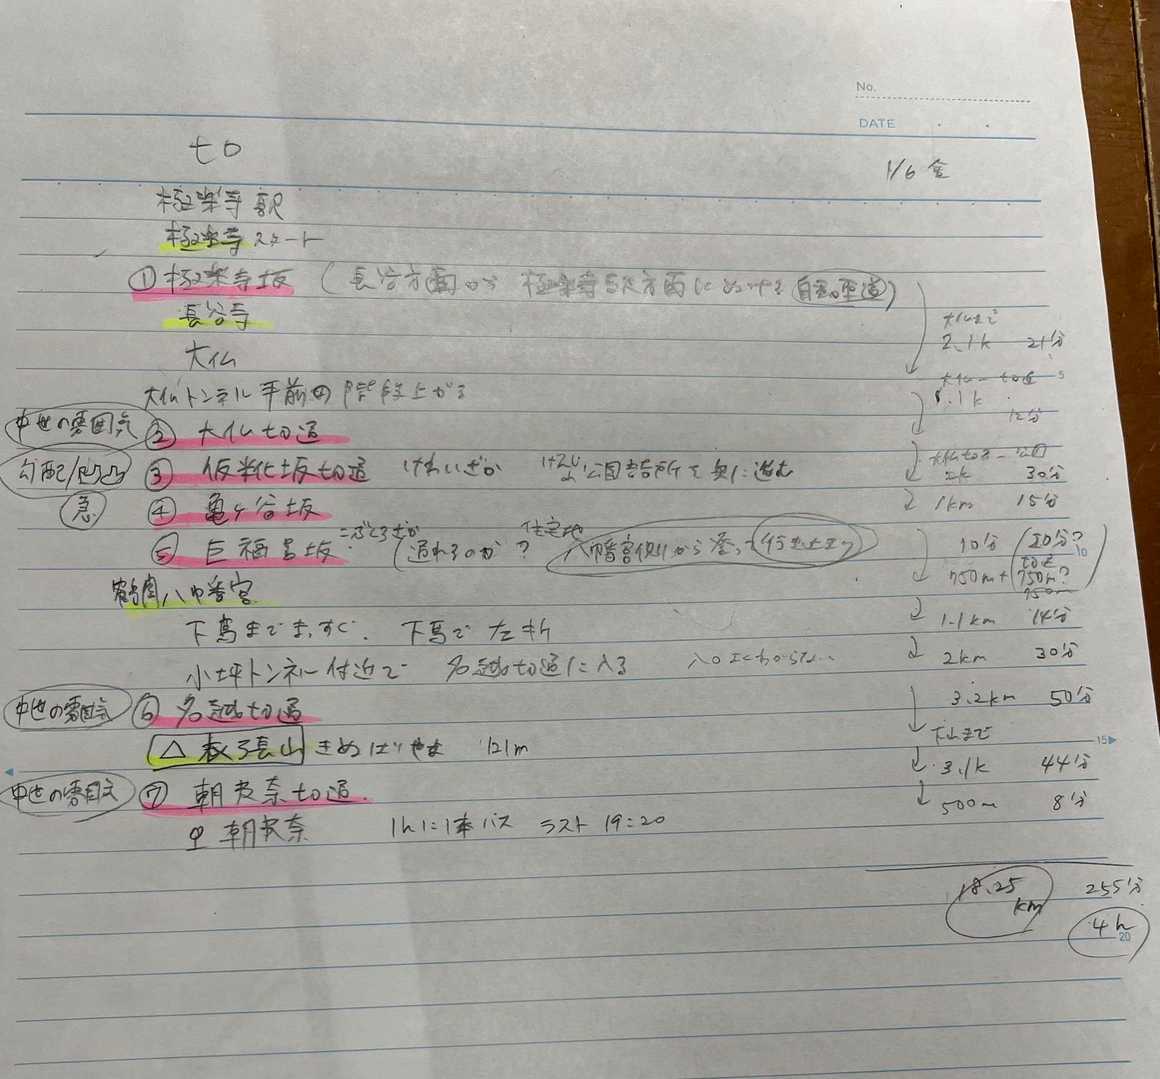 No.
DATE
1/6 金
七口
極楽寺駅
極楽寺スタート
① 極楽寺坂 (長谷方面から 極楽寺駅方面に
長谷寺
大仏まで
2.1k 21分
大仏
大仏トンネル手前の階段上がる
1.1k
12分
中世の雰囲気 ② 大仏切通
勾配/凸凹 ③ 仮粧坂切通 けわいざか 公園詰所を奥に進む
2k 30分
急 ④ 亀ヶ谷坂
1km 15分
こぶくろざか 住宅地
⑤ 巨福呂坂 (通れるのか? 八幡宮側から登って行き止まり
10分 (20分?
750m + 750m?)
750m
鶴岡八幡宮
下馬まですぐ. 下馬で左折
1.1km 14分
小坪トンネル付近で 名越切通に入る 入口よくわからない…
2km 30分
中世の雰囲気 ⑥ 名越切通
3.2km 50分
△衣張山 きぬばりやま 121m
下山まで
3.1k 44分
中世の雰囲気 ⑦ 朝夷奈切通.
500m 8分
朝夷奈 1hに1本バス ラスト 19:20
18.25km 255分
4h
5
10
15
20